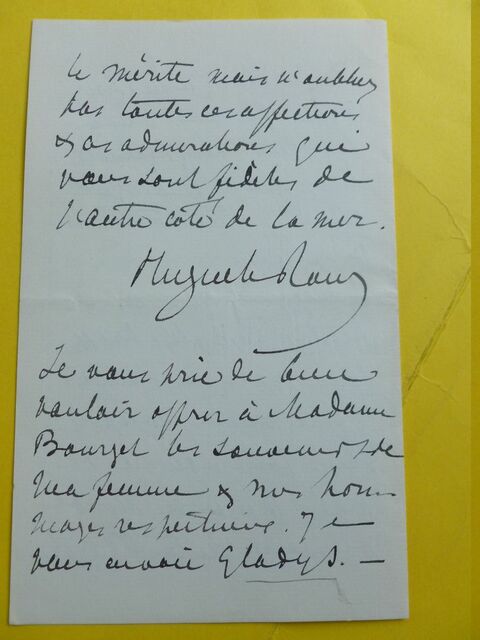 le mérite mais n'oubliez
pas toutes ces affections
& ces admirations qui
vous sont fidèles de
l'autre côté de la mer.
Hugues Le Roux
Je vous prie de bien
vouloir offrir à Madame
Bourget les souvenirs de
ma femme & mes hom-
mages respectueux. Je
vous envoie Gladys. —